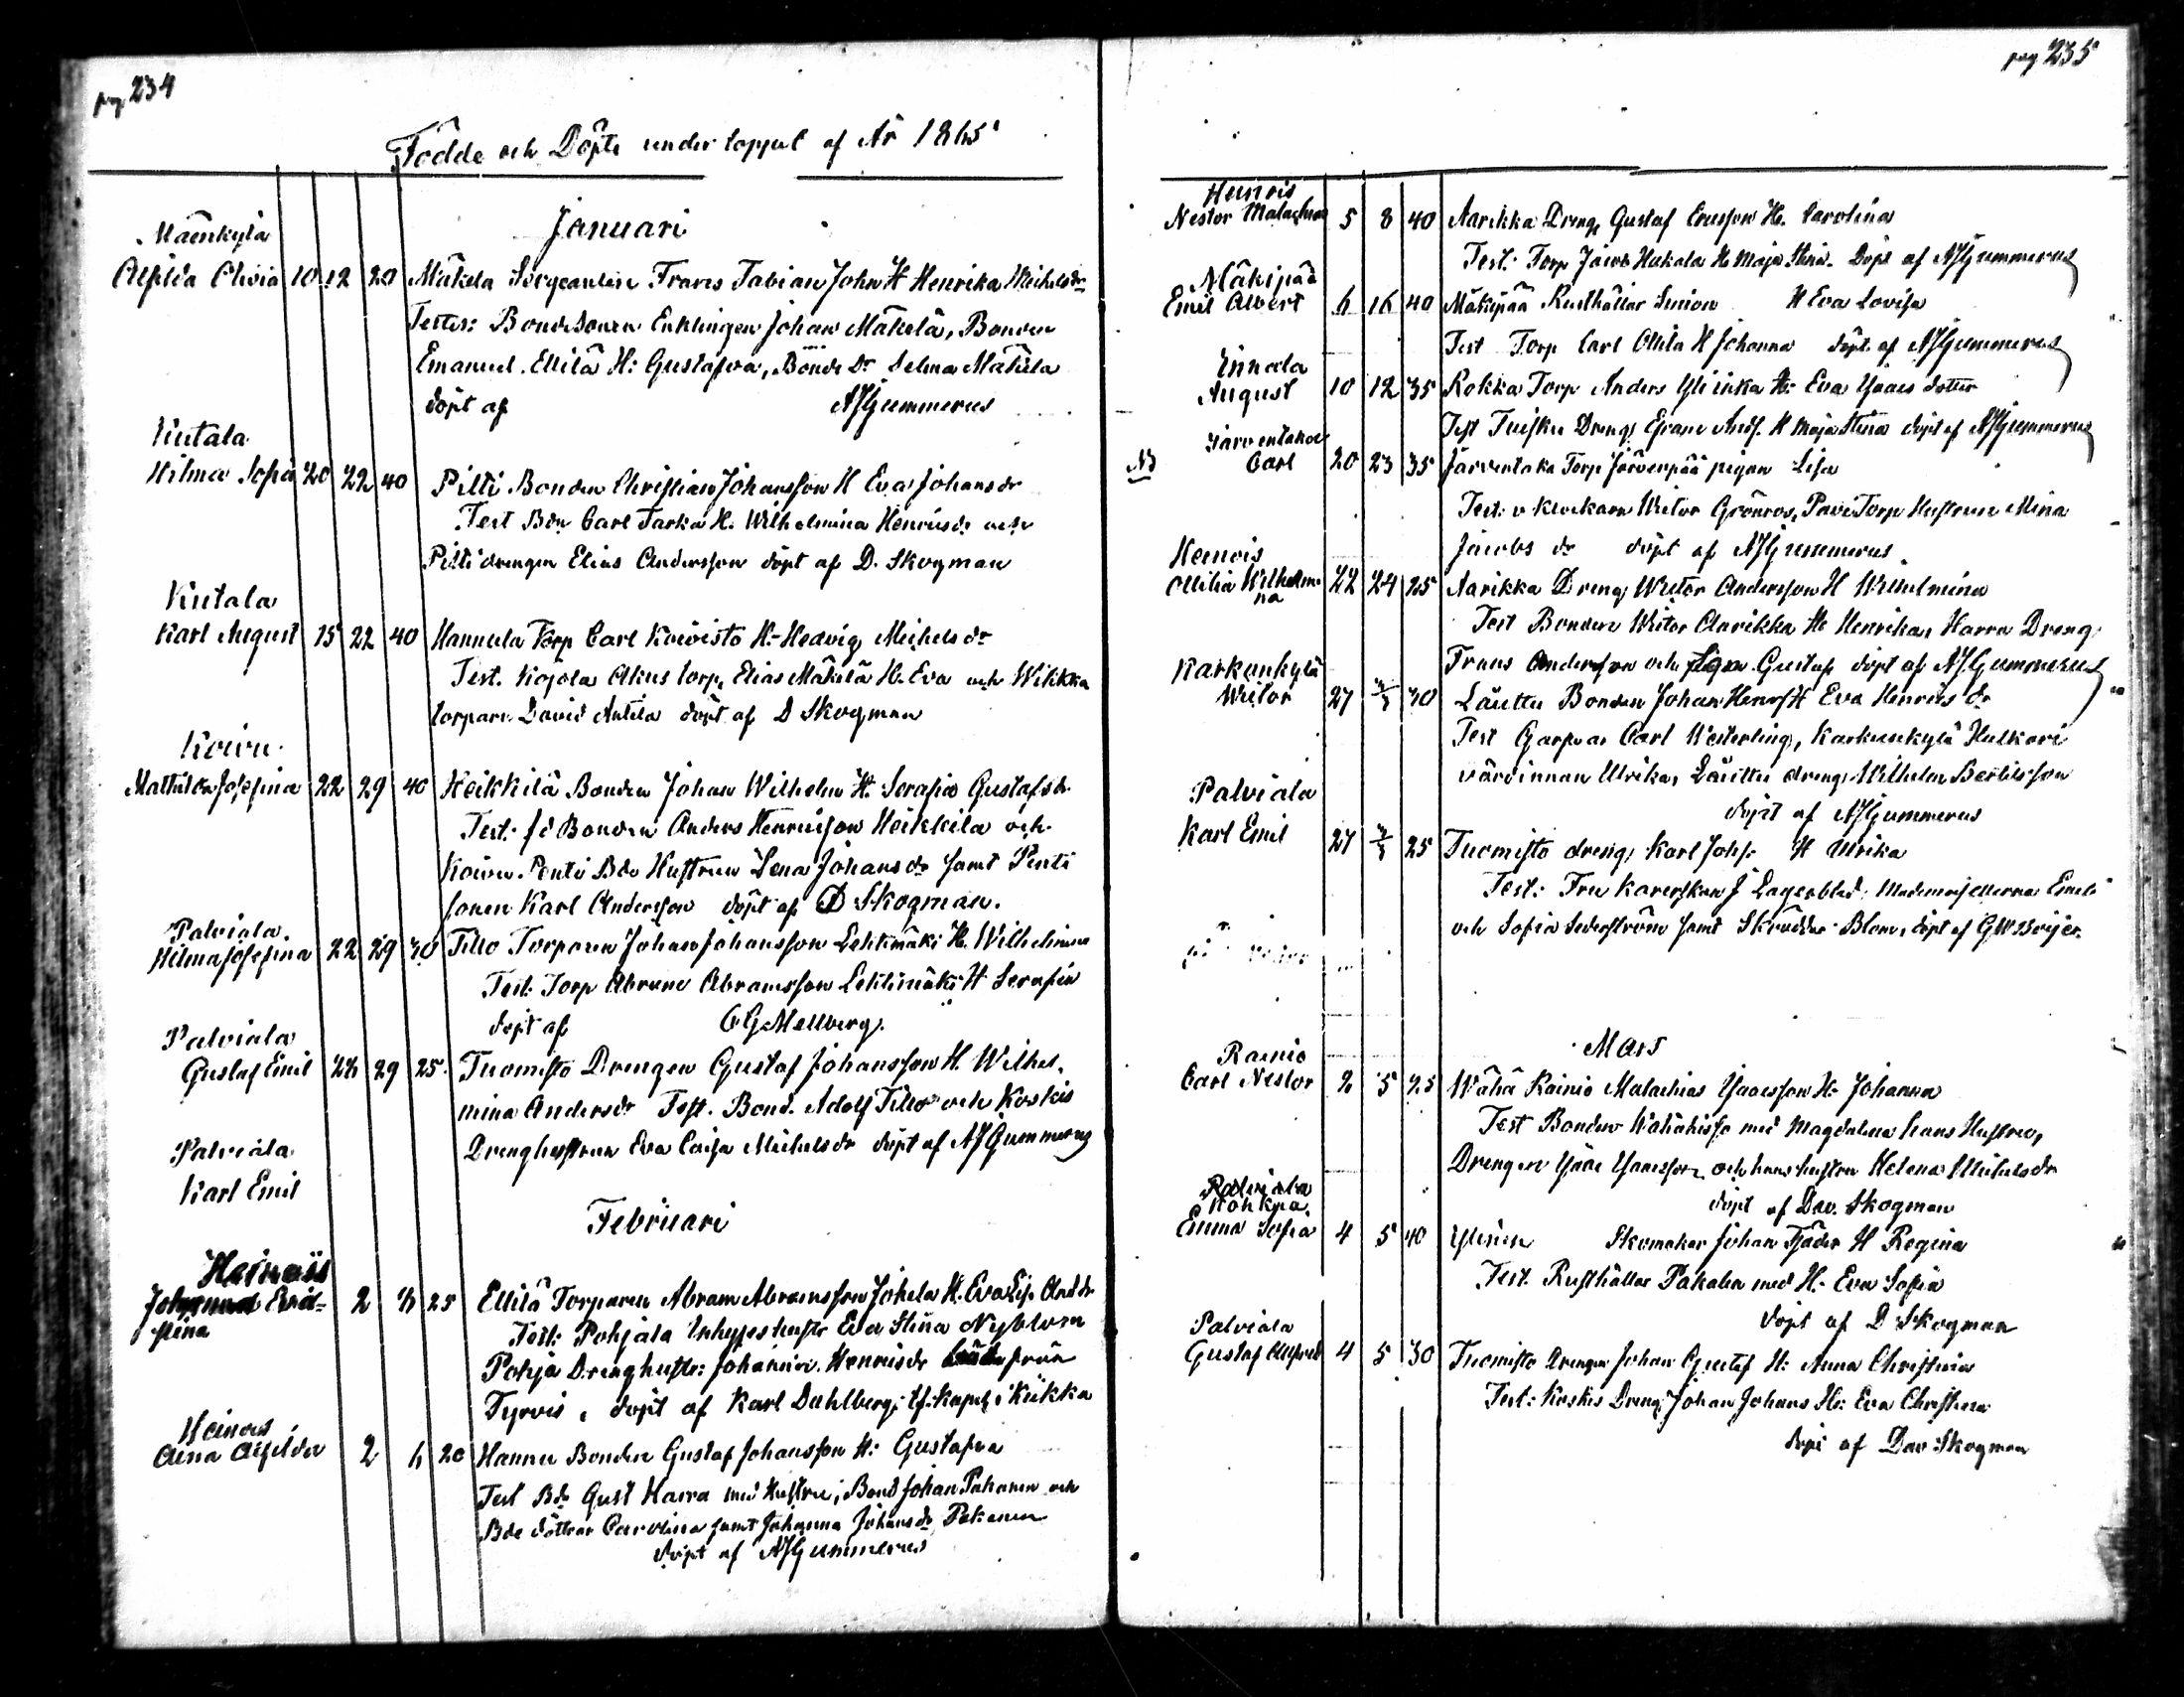 pag 234
Födde och Döpte under loppet af År 1865
Januari
Mäenkylä
Alfida Olivia 10 12 20 Mäkelä Sergeanten Frans Fabian John H Henrika Michelsdr
Testes: Bondesonen Enklingen Johan Mäkelä, Bonden
Emanuel Ellilä H: Gustafva, Bonde Dr Selma Mäkelä
döpt af AJGummerus
Kutala
Hilma Sofia 20 22 40 Pilti Bonden Christian Johansson H Eva Johansdr
Test Bdn Carl Tarka H. Wilhelmina Henricsdr och
Pilti drengen Elias Andersson döpt af D. Skogman
Kutala
Karl August 15 22 40 Hannula Torp Carl Koivisto H. Hedvig Michelsdr
Test. Kojola Akus torp. Elias Mäkelä H. Eva och Wikka
torparn David Antila döpt af D Skogman
Koivu
Mathilda Josefina 22 29 40 Heikkilä Bonden Johan Wilhelm H. Serafia Gustafsdr
Test: fd Bonden Anders Henricsson Heikkilä och
Koivu Penti Bde Hustrun Lena Johansdr samt Penti
sonen Karl Andersson döpt af D Skogman.
Palviala
Hilma Josefina 22 29 30 Tillo Torparen Johan Johansson Lehtimäki H. Wilhelmina
Test: Torp Abram Abramsson Lehtimäki H Serafia
döpt af CGMellberg.
Palviala
Gustaf Emil 29 25 Tuomisto Drengen Gustaf Johansson H. Wilhel-
mina Andersdr Test. Bond. Adolf Tillo och Koskis
Drenghustrun Eva Caisa Michelsdr döpt af AJGummerus
Palviala
Karl Emil
Februari
Heinois
Eva-
stina 2 4 25 Ellilä Torparen Abram Abramsson Johela H. Eva Lis. Anddr
Test: Pohjala Inhyses hustr Eva Stina Nyblom
Pohja Drenghustr: Johanna Henricsdr från
Tyrvis, döpt af Karl Dahlberg, tf. kapel. i Kiikka
Heinois
Aina Alfilda 2 6 20 Hannu Bonden Gustaf Johansson H: Gustafva
Test Bdn Gust Harra med Hustru, Bond Johan Pakanen och
Bde döttrar Carolina samt Johanna Johansdr Pakanen
döpt af AJGummerus
pag 235
Heinois
Nestor Malachias 5 8 40 Aarikka Dreng Gustaf Ericsson H. Carolina
Test: Torp Jacob Hakala H Maja Stina. Döpt af AJGummerus
Mäkipää
Emil Albert 6 16 40 Mäkipää Rusthållar Simon H Eva Lovisa
Test Torp Carl Ollila H Johanna döpt af AJGummerus
August 10 12 35 Rokka Torp Anders H: Eva Isaacs dotter
Test Tuisku Dreng H Maja Stina döpt af AJGummerus
Järventaka
Carl 20 23 35 Järventaka Torp Järvenpää pigan Lisa
Test: v Klockarn Wictor Grönros, Pave Torp Hustrun Mina
Jacobs dr döpt af AJGummerus
Heinois
Ollilia Wilhelmi-
na 22 24 25 Aarikka Dreng Wictor Andersson H Wilhelmina
Test Bonden Wictor Aarikka H Henrika, Harra Dreng
Frans Andersson och Gustaf döpt af AJGummerus
Karkunkylä
Wictor 27 30 Läuttu Bonden Johan Henrs H Eva Henrics dr
Test Garfvar Carl Westerling, Karkunkylä Hulkari
värdinnan Ulrika, Läuttu dreng Wilhelm Bertilsson
döpt af AJGummerus
Palviala
Karl Emil 27 25 Tuomisto dreng Karl Johs H Ulrika
Test: Fru J Lagerblad, Mademoisellerna Emeli
och Sofia Sederström samt Skräddar Blom, döpt af
Mars
Rainio
Carl Nestor 2 5 25 Wähä Rainio Malachias Isaacsson H: Johanna
Test Bonden med Magdalena hans Hustru,
Drengen Isaac Isaacsson och hans hustru Helena Michelsdr
döpt af Dav. Skogman
Palviala
Emma Sofia 4 5 40 Ylinen Skomakar Johan Tjäder H Regina
Test. Rusthållar Pakalen med H. Eva Sofia
döpt af D Skogman
Palviala
Gustaf Alfred 4 5 30 Tuomisto Drengen Johan Gustaf H: Anna Christina
Test: Koskis Dreng Johan Johans H: Eva Christina
döpt af Dav Skogman